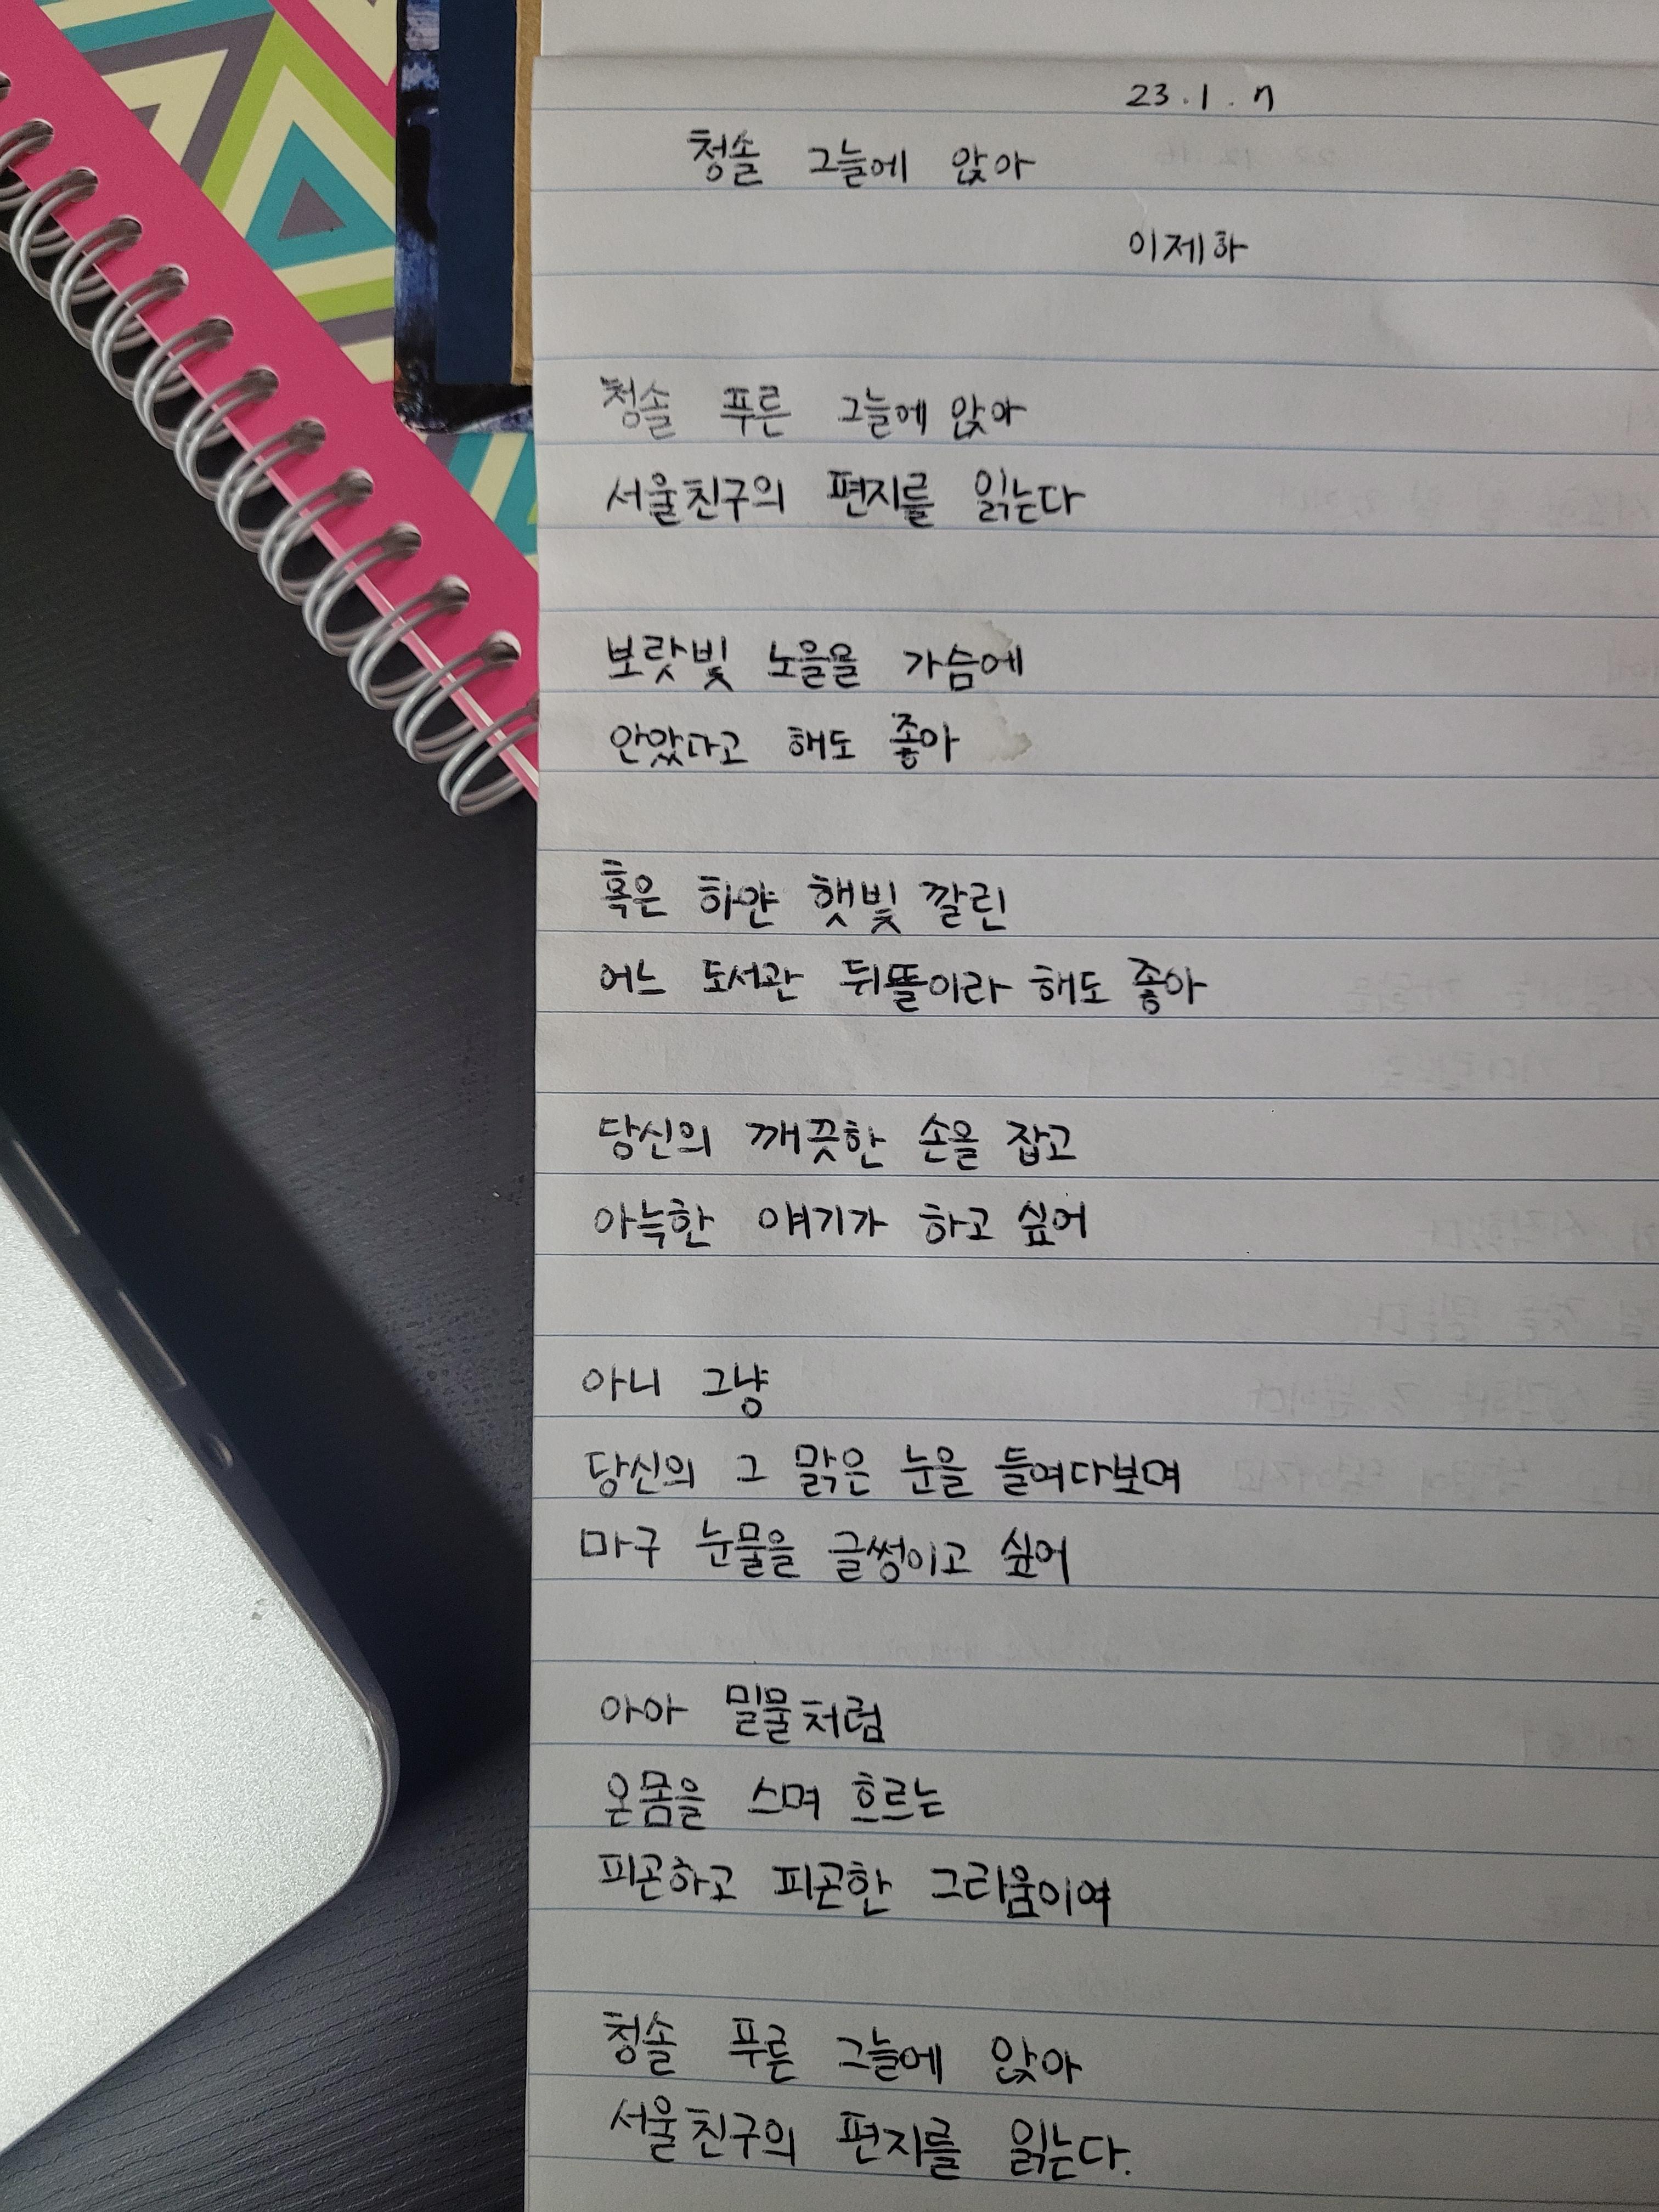 23.1.7
청솔 그늘에 앉아
이제하
청솔 푸른 그늘에 앉아
서울친구의 편지를 읽는다
보랏빛 노을을 가슴에
안았다고 해도 좋아
혹은 하얀 햇빛 깔린
어느 도서관 뒤뜰이라 해도 좋아
당신의 깨끗한 손을 잡고
아늑한 얘기가 하고 싶어
아니 그냥
당신의 그 맑은 눈을 들여다보며
마구 눈물을 글썽이고 싶어
아아 밀물처럼
온몸을 스며 흐르는
피곤하고 피곤한 그리움이여
청솔 푸른 그늘에 앉아
서울친구의 편지를 읽는다.